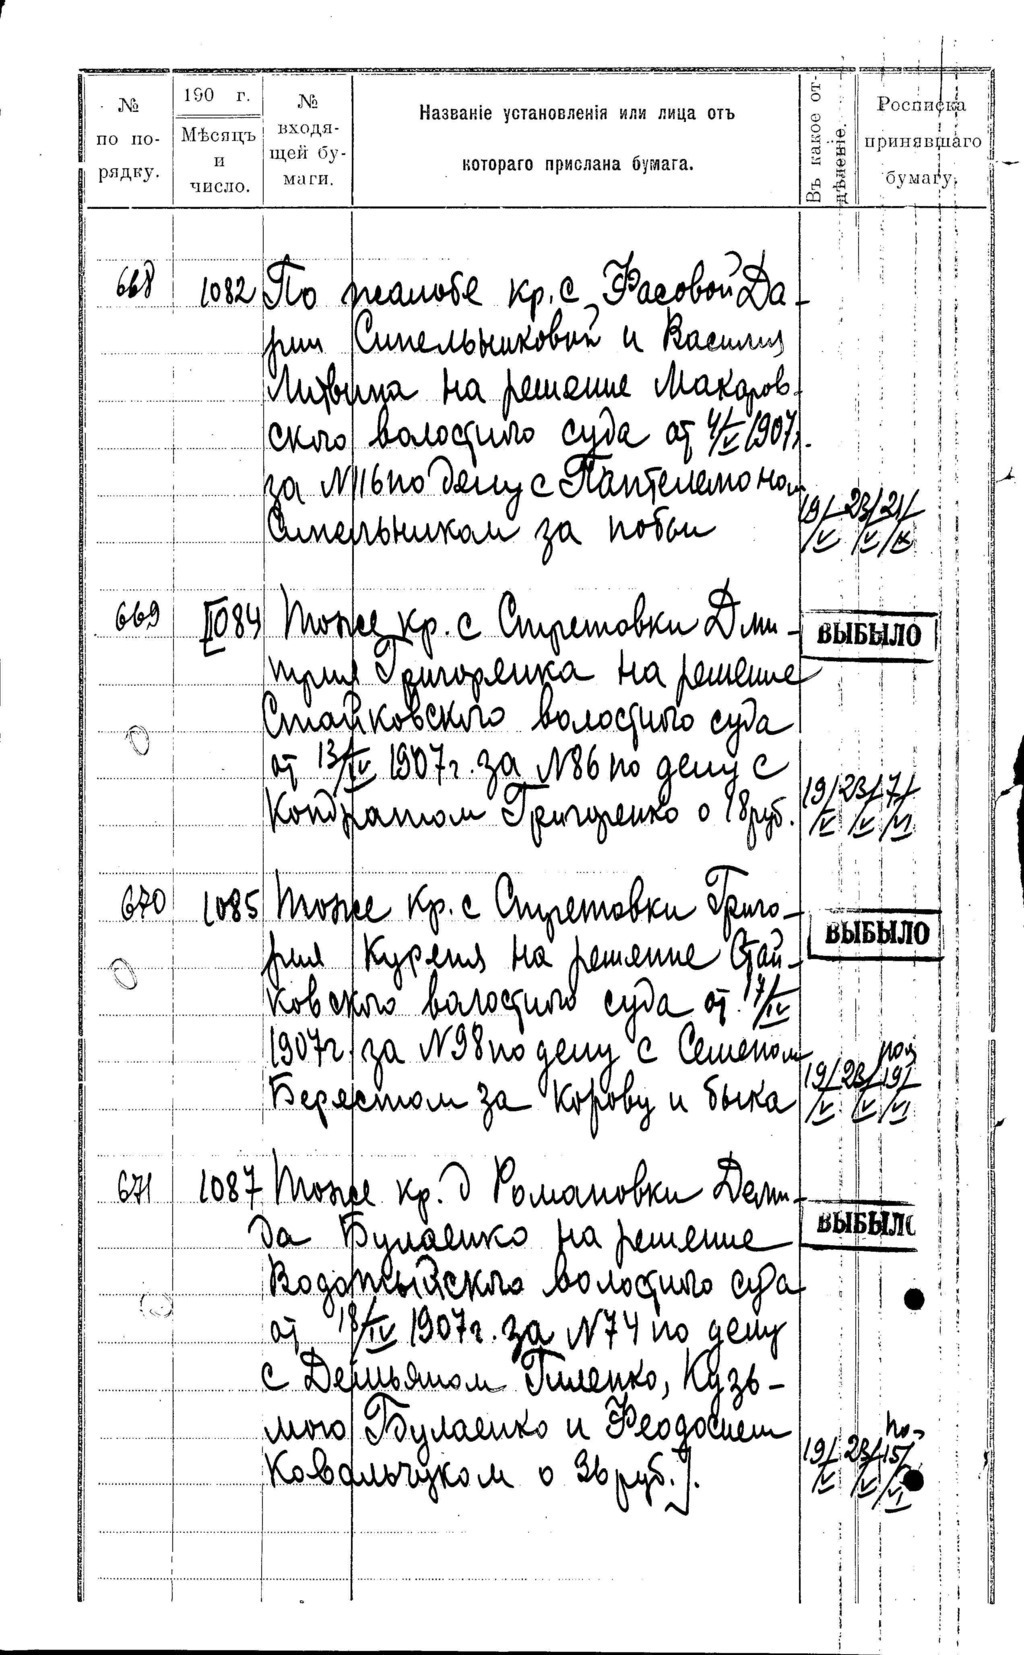 № по порядку.
190 г. Мѣсяцъ и число.
№ входящей бумаги.
Названіе установленія или лица отъ
котораго прислана бумага.
Въ какое отдѣленіе.
Росписка принявшаго бумагу.
668 1082 По жалобе кр. с. Фасовой Да-
рии Синельниковой и Василия
Литвина на решение Макаров-
ского волостного суда от 4/V 1907 г.
за N 116 по делу с Пантелемоном
Синельником за побои
19/V 23/V 21/IX
669 1084 Тоже кр. с Стретовки Дми-
трия Григоренка на решение
Стайковского волостного суда
от 13/IV 1907 г. за N 86 по делу с
Кондратом Григоренко о 18 руб.
ВЫБЫЛО
19/V 23/V 7/VI
670 1085 Тоже кр. с Стретовки Григо-
рия Куреня на решение Стай-
ковского волостного суда от 17/IV
1907 г. за N 98 по делу с Семеном
Берестом за корову и быка
ВЫБЫЛО
19/V 23/V 19/VI
671 1087 Тоже кр. д Романовки Деми-
да Булаенко на решение
Водотыйского волостного суда
от 18/IV 1907 г. за N 74 по делу
с Демьяном Гиленко, Кузь-
мою Булаенко и Феодосием
Ковальчуком о 36 руб.
ВЫБЫЛО
19/V 23/V 15/VI